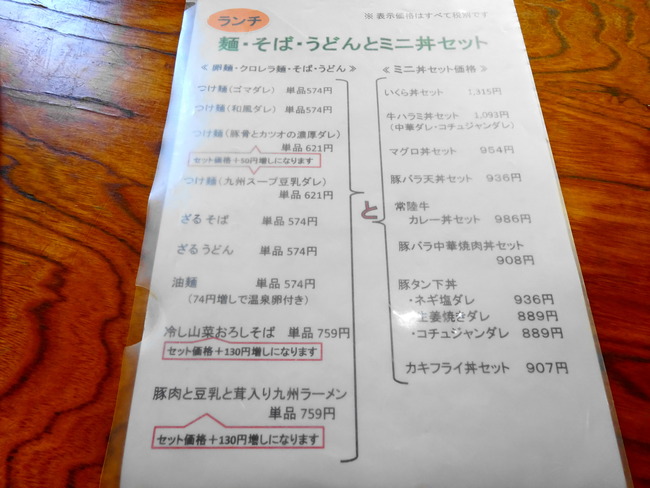 ランチ
※ 表示価格はすべて税別です
麺・そば・うどんとミニ丼セット
≪ 卵麺・クロレラ麺・そば・うどん ≫
つけ麺(ゴマダレ) 単品574円
つけ麺(和風ダレ) 単品574円
つけ麺(豚骨とカツオの濃厚ダレ)
単品621円
セット価格+50円増しになります
つけ麺(九州スープ豆乳ダレ)
単品621円
ざるそば 単品574円
ざるうどん 単品574円
油麺 単品574円
(74円増しで温泉卵付き)
冷し山菜おろしそば 単品759円
セット価格+130円増しになります
豚肉と豆乳と茸入り九州ラーメン
単品759円
セット価格+130円増しになります
と
≪ ミニ丼セット価格 ≫
いくら丼セット 1,315円
牛ハラミ丼セット 1,093円
(中華ダレ・コチュジャンダレ)
マグロ丼セット 954円
豚バラ天丼セット 936円
常陸牛
カレー丼セット 986円
豚バラ中華焼肉丼セット
908円
豚タン下丼
・ネギ塩ダレ 936円
・生姜焼きダレ 889円
・コチュジャンダレ 889円
カキフライ丼セット 907円